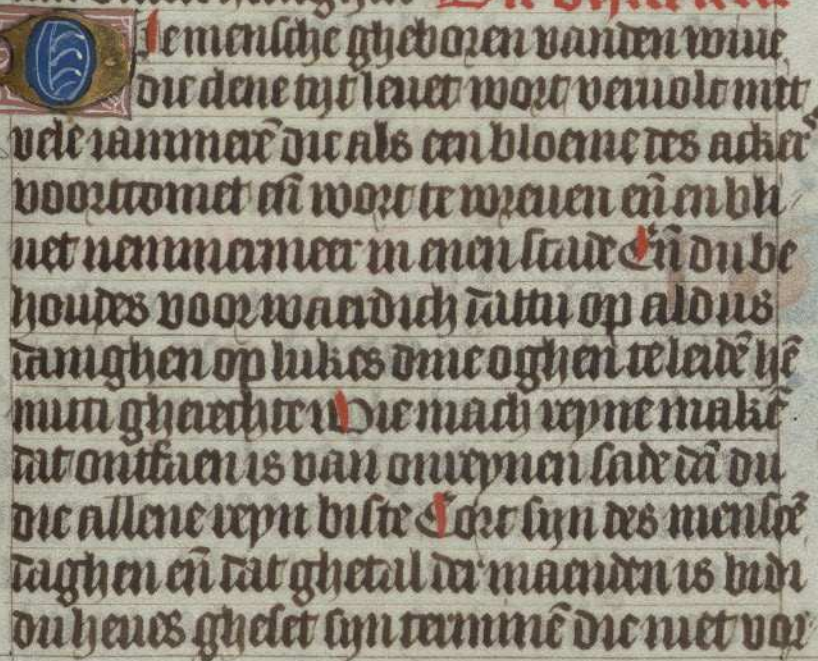 Die mensche gheboren vanden wiue
die clene tijt leuet wort veruolt mit
vele iammerē die als een bloeme des acker
voortcomet eñ wort te wreuen eñ en bli
uet nemmermeer in enen stade Eñ du be
houdes voorwaerdich dattu op aldus
danighen op lukes dine oghen te leidē hē
mitti gherechte Wie mach reyne makē
dat ontfaen is van onreynen sade dā du
die allene reyn biste Cort sijn des menscē
daghen eñ dat ghetal der maenden is bidi
du heues gheset sijn terminē die niet vor